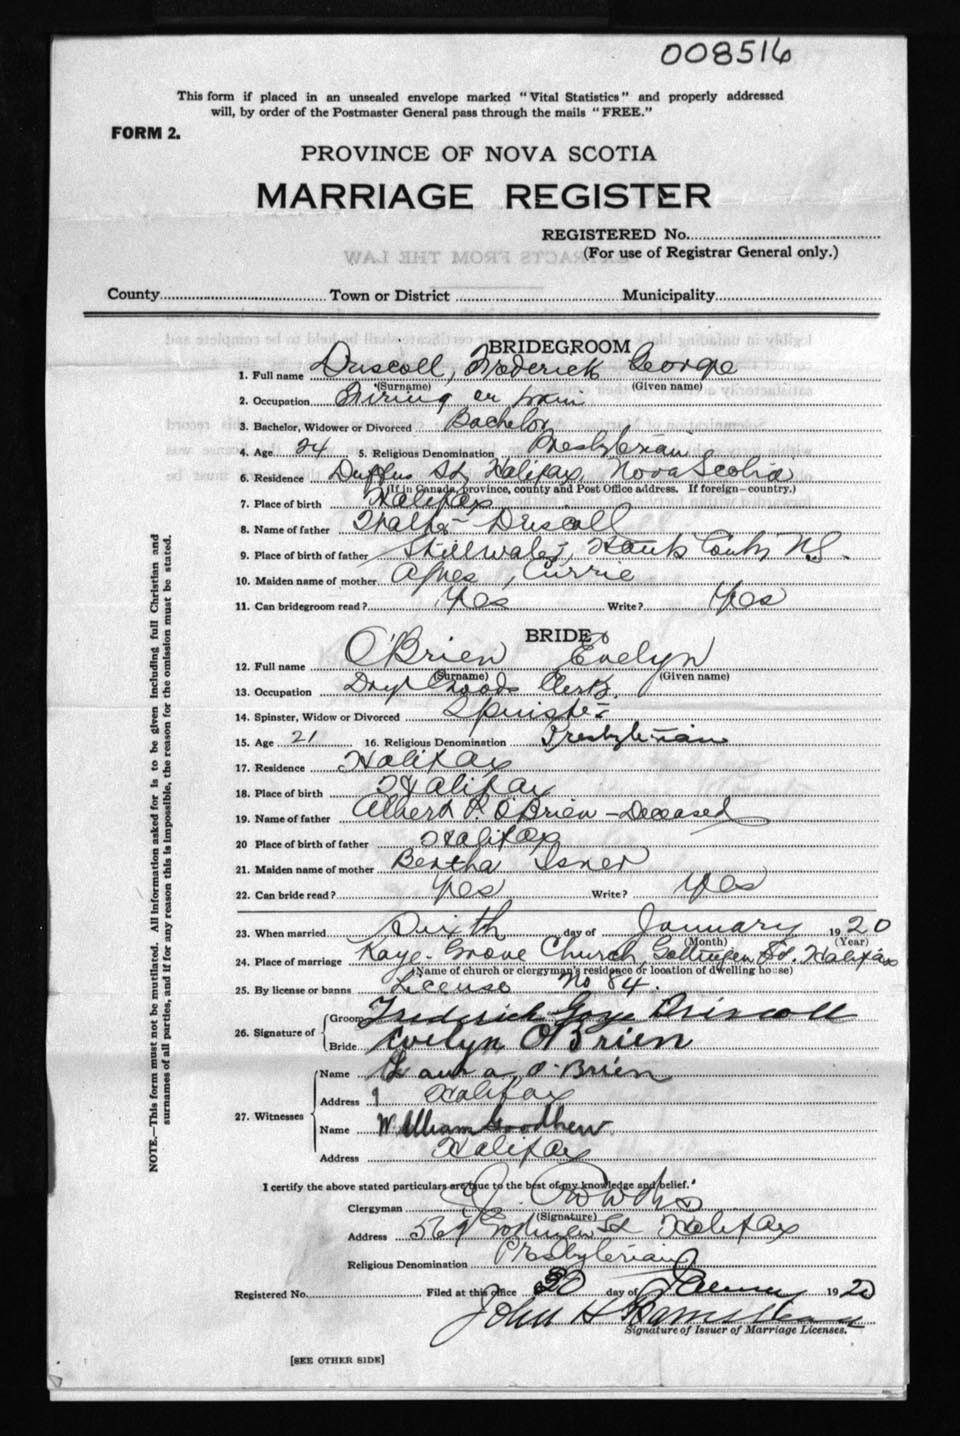 008516
This form if placed in an unsealed envelope marked "Vital Statistics" and properly addressed
will, by order of the Postmaster General pass through the mails "FREE."
FORM 2.
PROVINCE OF NOVA SCOTIA
MARRIAGE REGISTER
REGISTERED No.
(For use of Registrar General only.)
County Town or District Municipality
BRIDEGROOM
1. Full name Driscoll, Frederick George
(Surname) (Given name)
2. Occupation
3. Bachelor, Widower or Divorced Bachelor
4. Age 24 5. Religious Denomination Presbyterian
6. Residence Duffus St, Halifax, Nova Scotia
(If in Canada, province, county and Post Office address. If foreign—country.)
7. Place of birth Halifax
8. Name of father Walter Driscoll
9. Place of birth of father Stillwater, Hants County NS.
10. Maiden name of mother Agnes, Currie
11. Can bridegroom read? Yes Write? Yes
BRIDE
12. Full name O'Brien Evelyn
(Surname) (Given name)
13. Occupation Dry Goods Clerk,
14. Spinster, Widow or Divorced Spinster
15. Age 21 16. Religious Denomination Presbyterian
17. Residence Halifax
18. Place of birth Halifax
19. Name of father Albert P. O'Brien – Deceased
20 Place of birth of father Halifax
21. Maiden name of mother Bertha Isner
22. Can bride read? Yes Write? Yes
23. When married Sixth day of January 1920
(Month) (Year)
24. Place of marriage Kaye-Grove Church, Gottingen St. Halifax
(Name of church or clergyman's residence or location of dwelling house)
25. By license or banns License No 84.
26. Signature of Groom Frederick George Driscoll
Bride Evelyn O'Brien
27. Witnesses Name Laura O'Brien
Address Halifax
Name William Goodhew
Address Halifax
I certify the above stated particulars are true to the best of my knowledge and belief.
Clergyman
(Signature)
Address 569 St Halifax
Religious Denomination Presbyterian
Registered No. Filed at this office 30 day of January 1920
John H
Signature of Issuer of Marriage Licenses.
[SEE OTHER SIDE]
NOTE.—This form must not be mutilated. All information asked for is to be given including full Christian and
surnames of all parties, and if for any reason this is impossible, the reason for the omission must be stated.